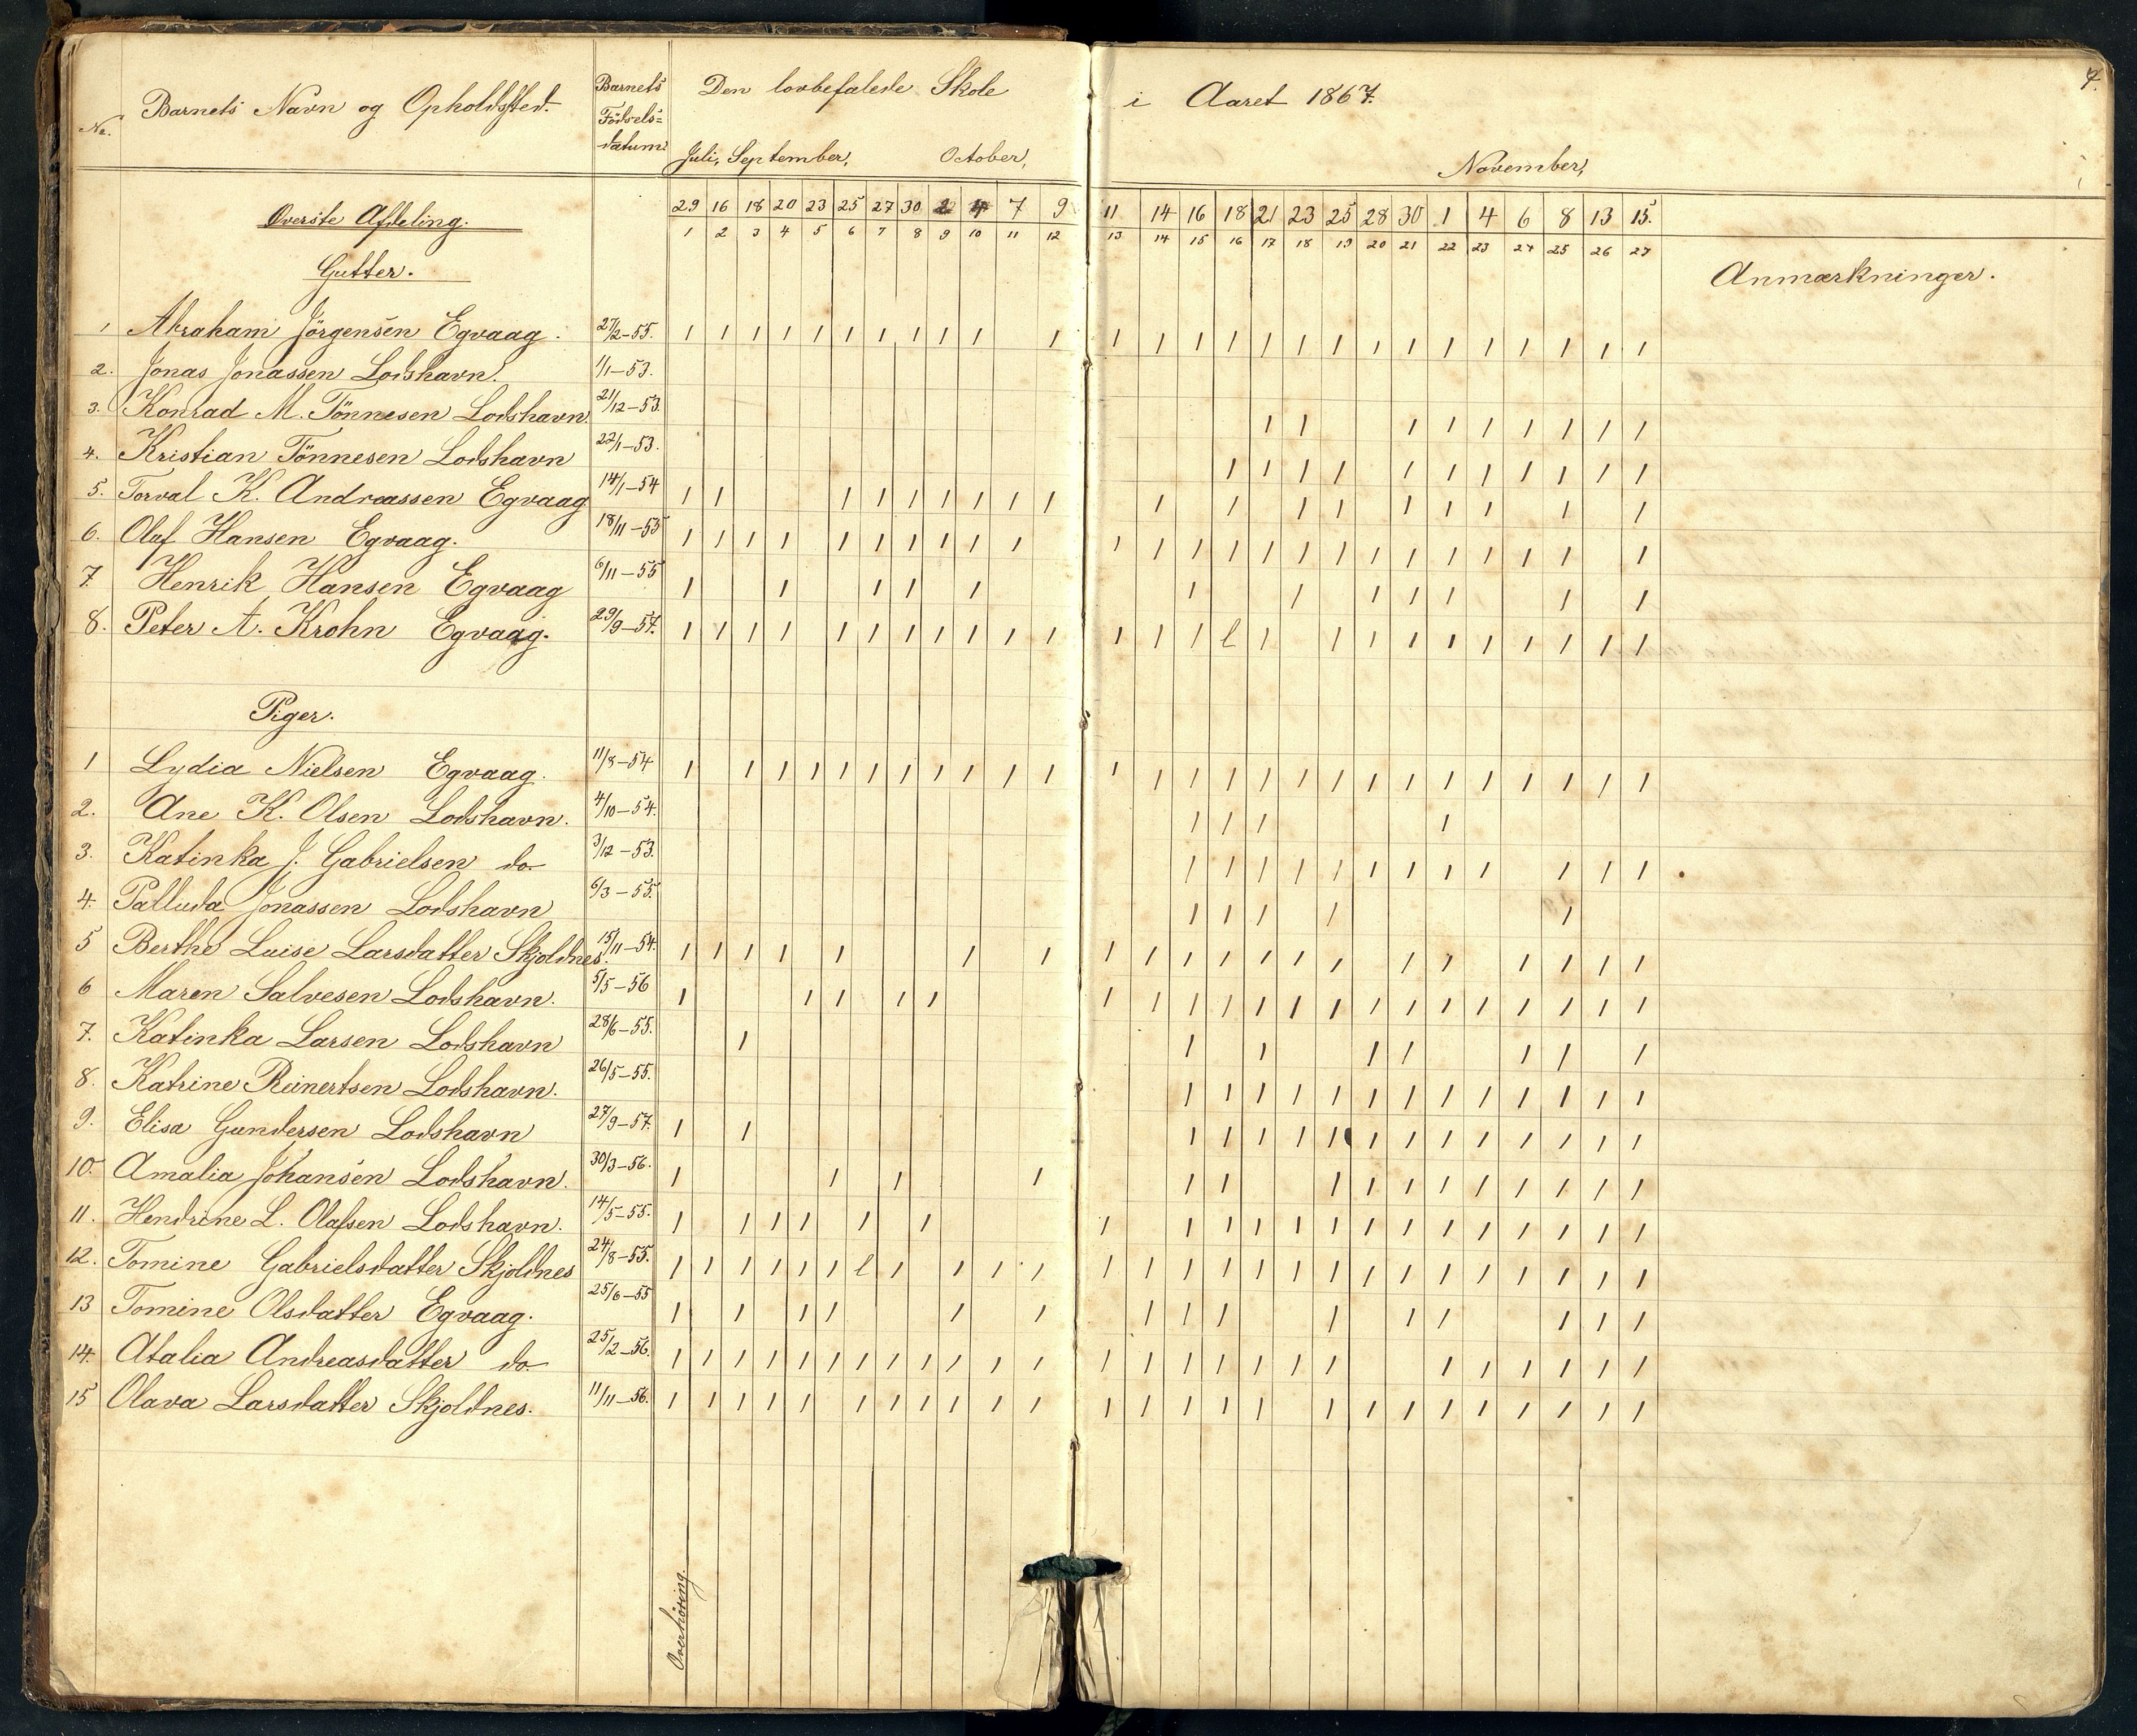 7.
Nr. Barnets Navn og Opholdssted. Barnets Födsels=datum. Den lovbefalede Skole i Aaret 1867.
Juli, September, October, November,
29 16 18 20 23 25 27 30 2 4 7 9 11 14 16 18 21 23 25 28 30 1 4 6 8 13 15.
1 2 3 4 5 6 7 8 9 10 11 12 13 14 15 16 17 18 19 20 21 22 23 24 25 26 27
Överste Afdeling.
Gutter.
Anmærkninger.
1 Abraham Jörgensen Egvaag. 27/2-55. 1 1 1 1 1 1 1 1 1 1 1 1 1 1 1 1 1 1 1 1 1 1 1 1 1 1
2. Jonas Jonassen Lodshavn. 1/1-53.
3. Konrad M. Tönnesen Lodshavn. 21/12-53. 1 1 1 1 1 1 1 1 1
4. Kristian Tönnesen Lodshavn 22/1-53. 1 1 1 1 1 1 1 1 1 1 1
5. Torval K. Andreassen Egvaag 14/1-54 1 1 1 1 1 1 1 1 1 1 1 1 1 1 1 1 1 1
6. Oluf Hansen Egvaag. 18/11-55 1 1 1 1 1 1 1 1 1 1 1 1 1 1 1 1 1 1 1 1 1 1 1 1
7. Henrik Hansen Egvaag 6/11-55 1 1 1 1 1 1 1 1 1 1 1 1
8. Peter A. Krohn Egvaag. 29/9-57. 1 1 1 1 1 1 1 1 1 1 1 1 1 1 l 1 1 1 1 1 1 1 1 1 1
Piger.
1 Lydia Nielsen Egvaag. 11/8-54. 1 1 1 1 1 1 1 1 1 1 1 1 1 1 1 1 1 1 1 1 1 1 1 1 1 1
2. Ane K. Olsen Lodshavn. 4/10-54. 1 1 1 1
3. Katinka J. Gabrielsen do. 3/12-53. 1 1 1 1 1 1 1 1 1 1 1 1
4. Palluda Jonassen Lodshavn 6/3-55. 1 1 1 1 1
5 Berthe Luise Larsdatter Skjoldnes. 15/11-54. 1 1 1 1 1 1 1 1 1 1 1 1 1 1 1 1 1 1 1 1
6 Maren Salvesen Lodshavn. 5/5-56 1 1 1 1 1 1 1 1 1 1 1 1 1 1 1 1 1 1 1 1
7. Katinka Larsen Lodshavn 28/6-55. 1 1 1 1 1 1 1 1
8. Katrine Reinertsen Lodshavn. 26/5-55. 1 1 1 1 1 1 1 1 1 1 1 1 1
9. Elisa Gundersen Lodshavn 27/9-57. 1 1 1 1 1 1 1 1 1 1 1 1 1 1 1
10. Amalia Johansen Lodshavn. 30/3-56. 1 1 1 1 1 1 1 1 1 1 1 1 1 1 1
11. Hendrine L. Olafsen Lodshavn. 14/5-55. 1 1 1 1 1 1 1 1 1 1 1 1 1 1 1 1 1 1 1 1
12. Tomine Gabrielsdatter Skjoldnes 24/8-55. 1 1 1 1 1 1 l 1 1 1 1 1 1 1 1 1 1 1 1 1 1 1 1 1 1 1
13 Tomine Olsdatter Egvaag. 25/6-55 1 1 1 1 1 1 1 1 1 1 1 1 1 1 1
14. Atalia Andreasdatter do. 25/2-56. 1 1 1 1 1 1 1 1 1 1 1 1 1 1 1 1 1 1 1 1 1 1 1 1 1
15 Olava Larsdatter Skjoldnes. 11/11-56. 1 1 1 1 1 1 1 1 1 1 1 1 1 1 1 1 1 1 1 1 1 1 1 1 1
Overhöring.